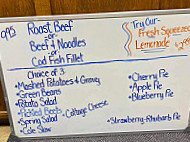 Roast Beef
or
Beef & Noodles
or
Cod Fish Fillet
Choice of 3
• Mashed Potatoes & Gravy
• Green Beans
• Potato Salad
• Pickled Beets
• Cottage Cheese
• Spring Salad
• Cole Slaw
Try Our-
Fresh Squeezed
Lemonade
• Cherry Pie
• Apple Pie
• Blueberry Pie
• Strawberry-Rhubarb Pie